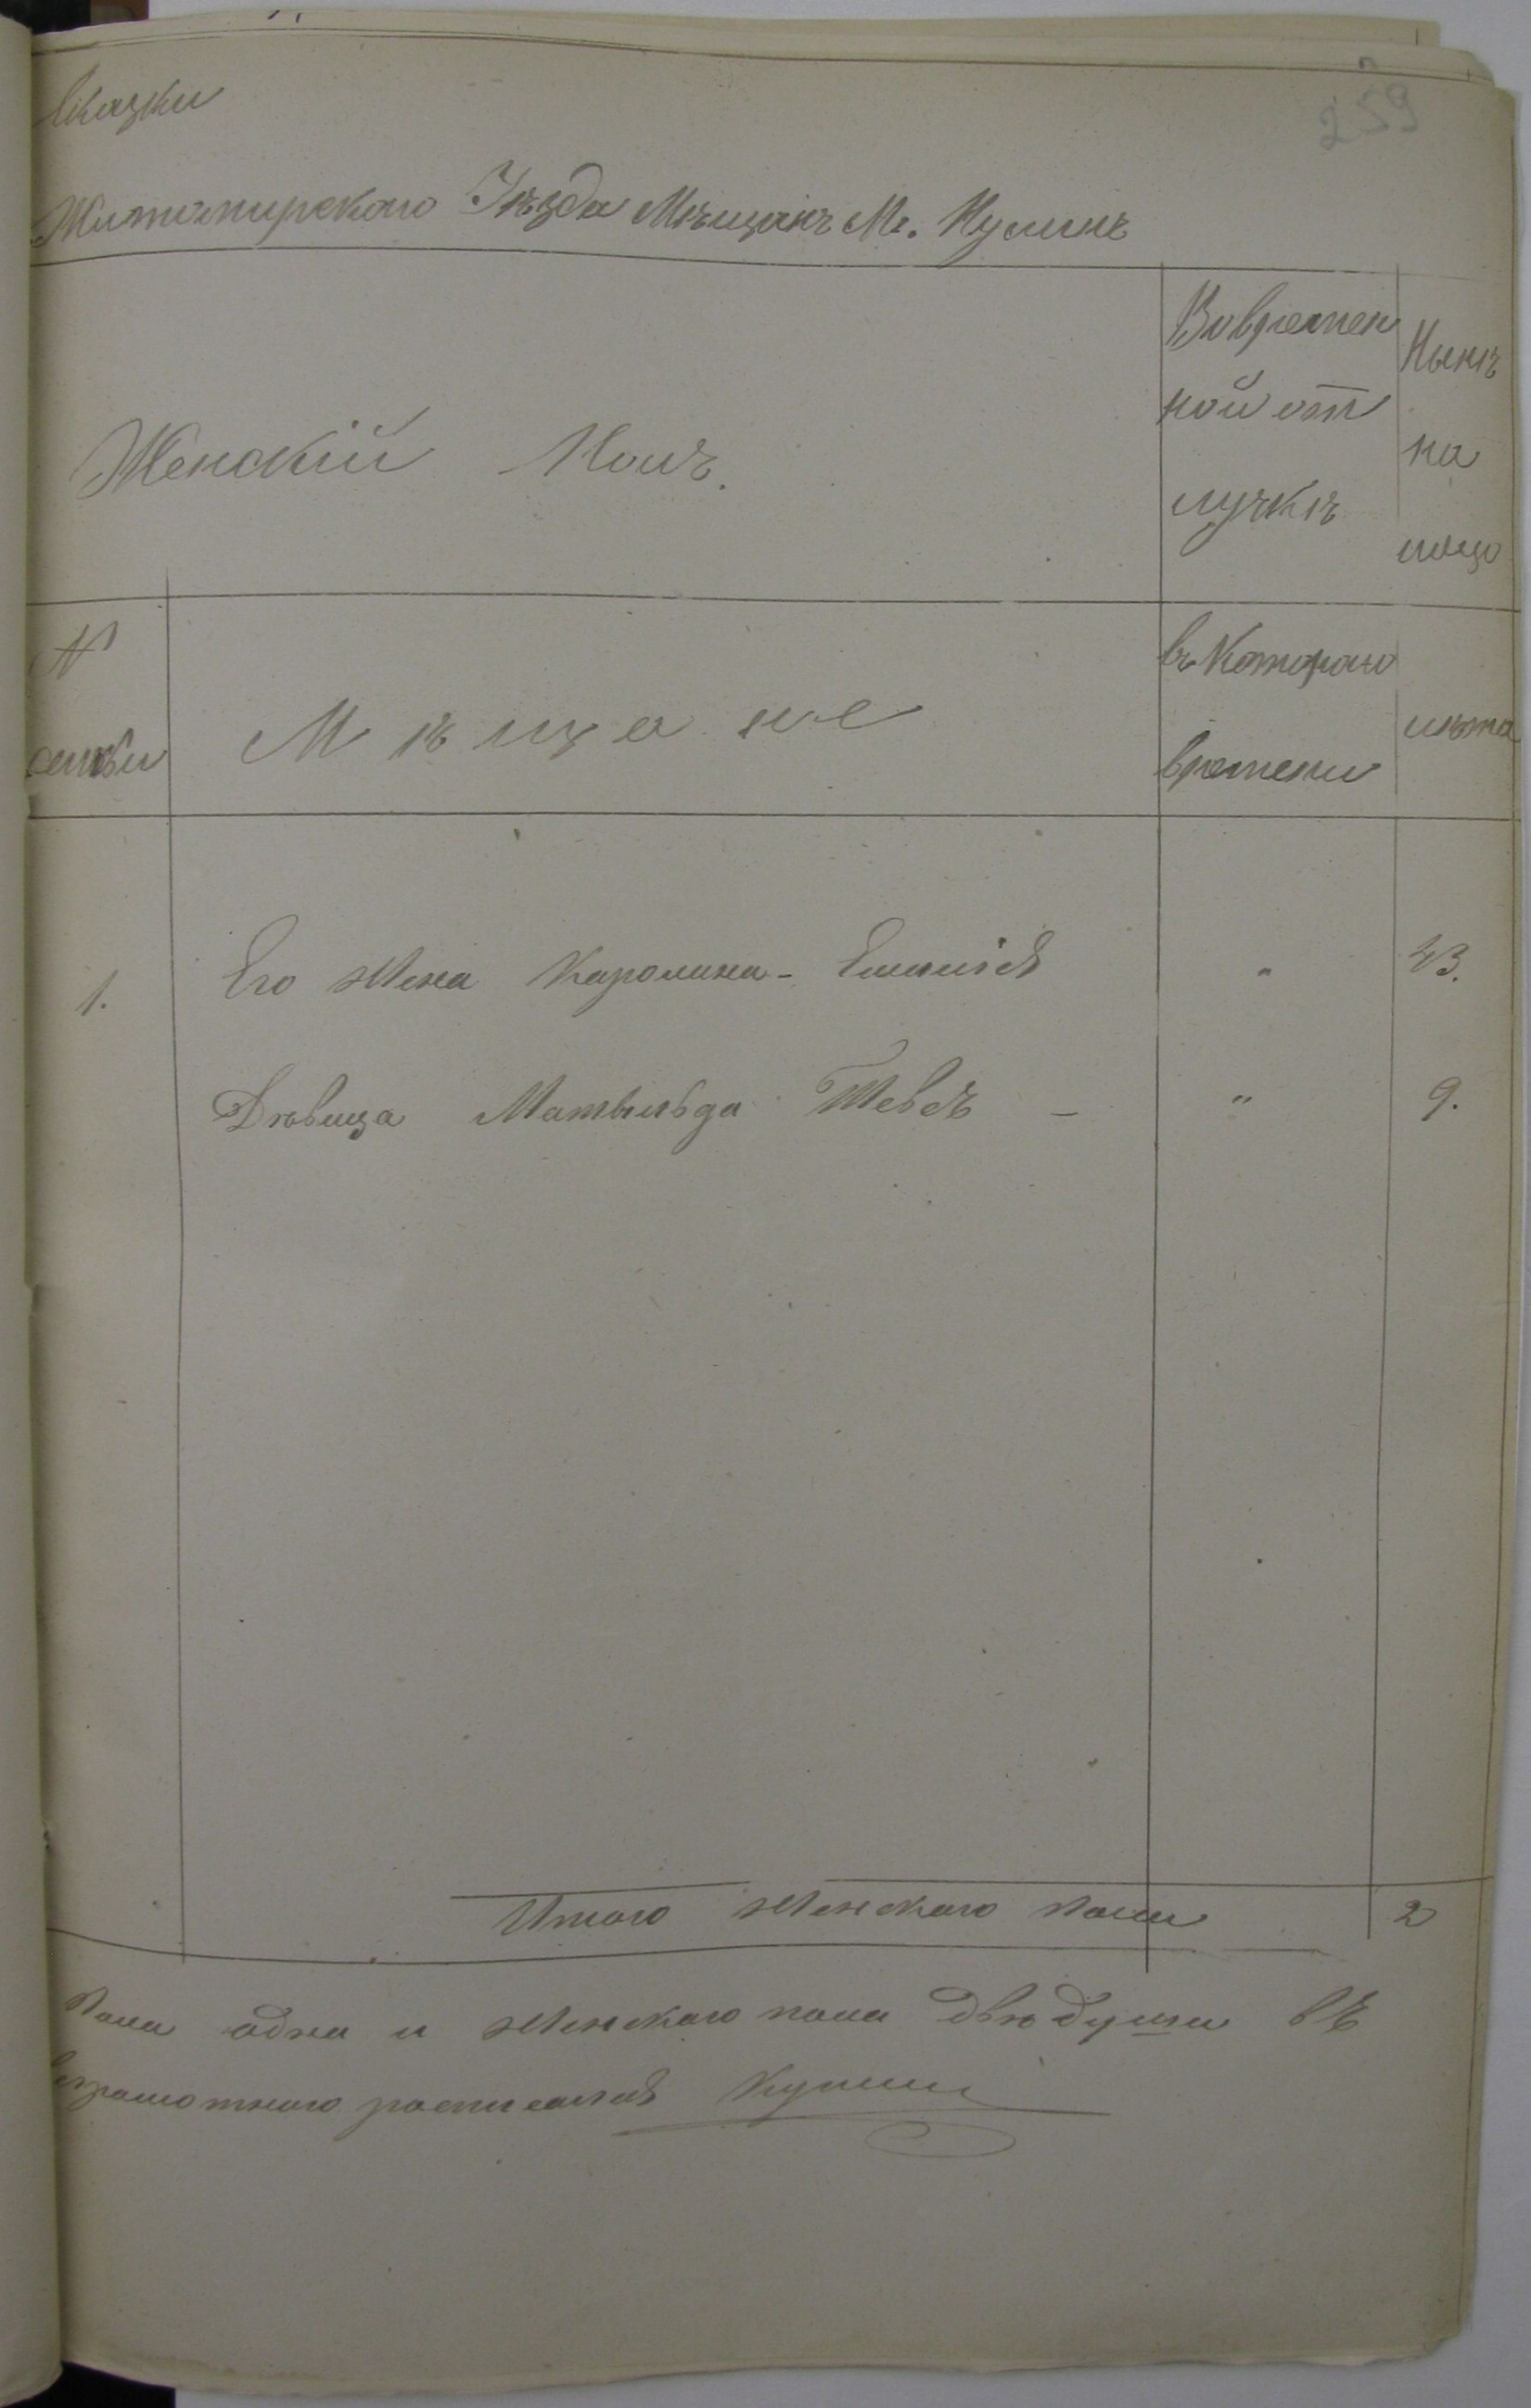 259
сказки
Житомирского Уѣзда Мѣщанъ М. Кулинъ
Женскій Полъ.
Во времен
ной от
лучкѣ
Нынѣ
на
лицо
№
семьи
Мѣщане
въ Котораго
времени
лѣта
1. Его жена Каролина - Емилія " 43.
Дѣвица Матвильда Тевсъ - " 9.
Итого женского пола 2
пола одна и женского пола двѣ души въ
неграмотного росписался